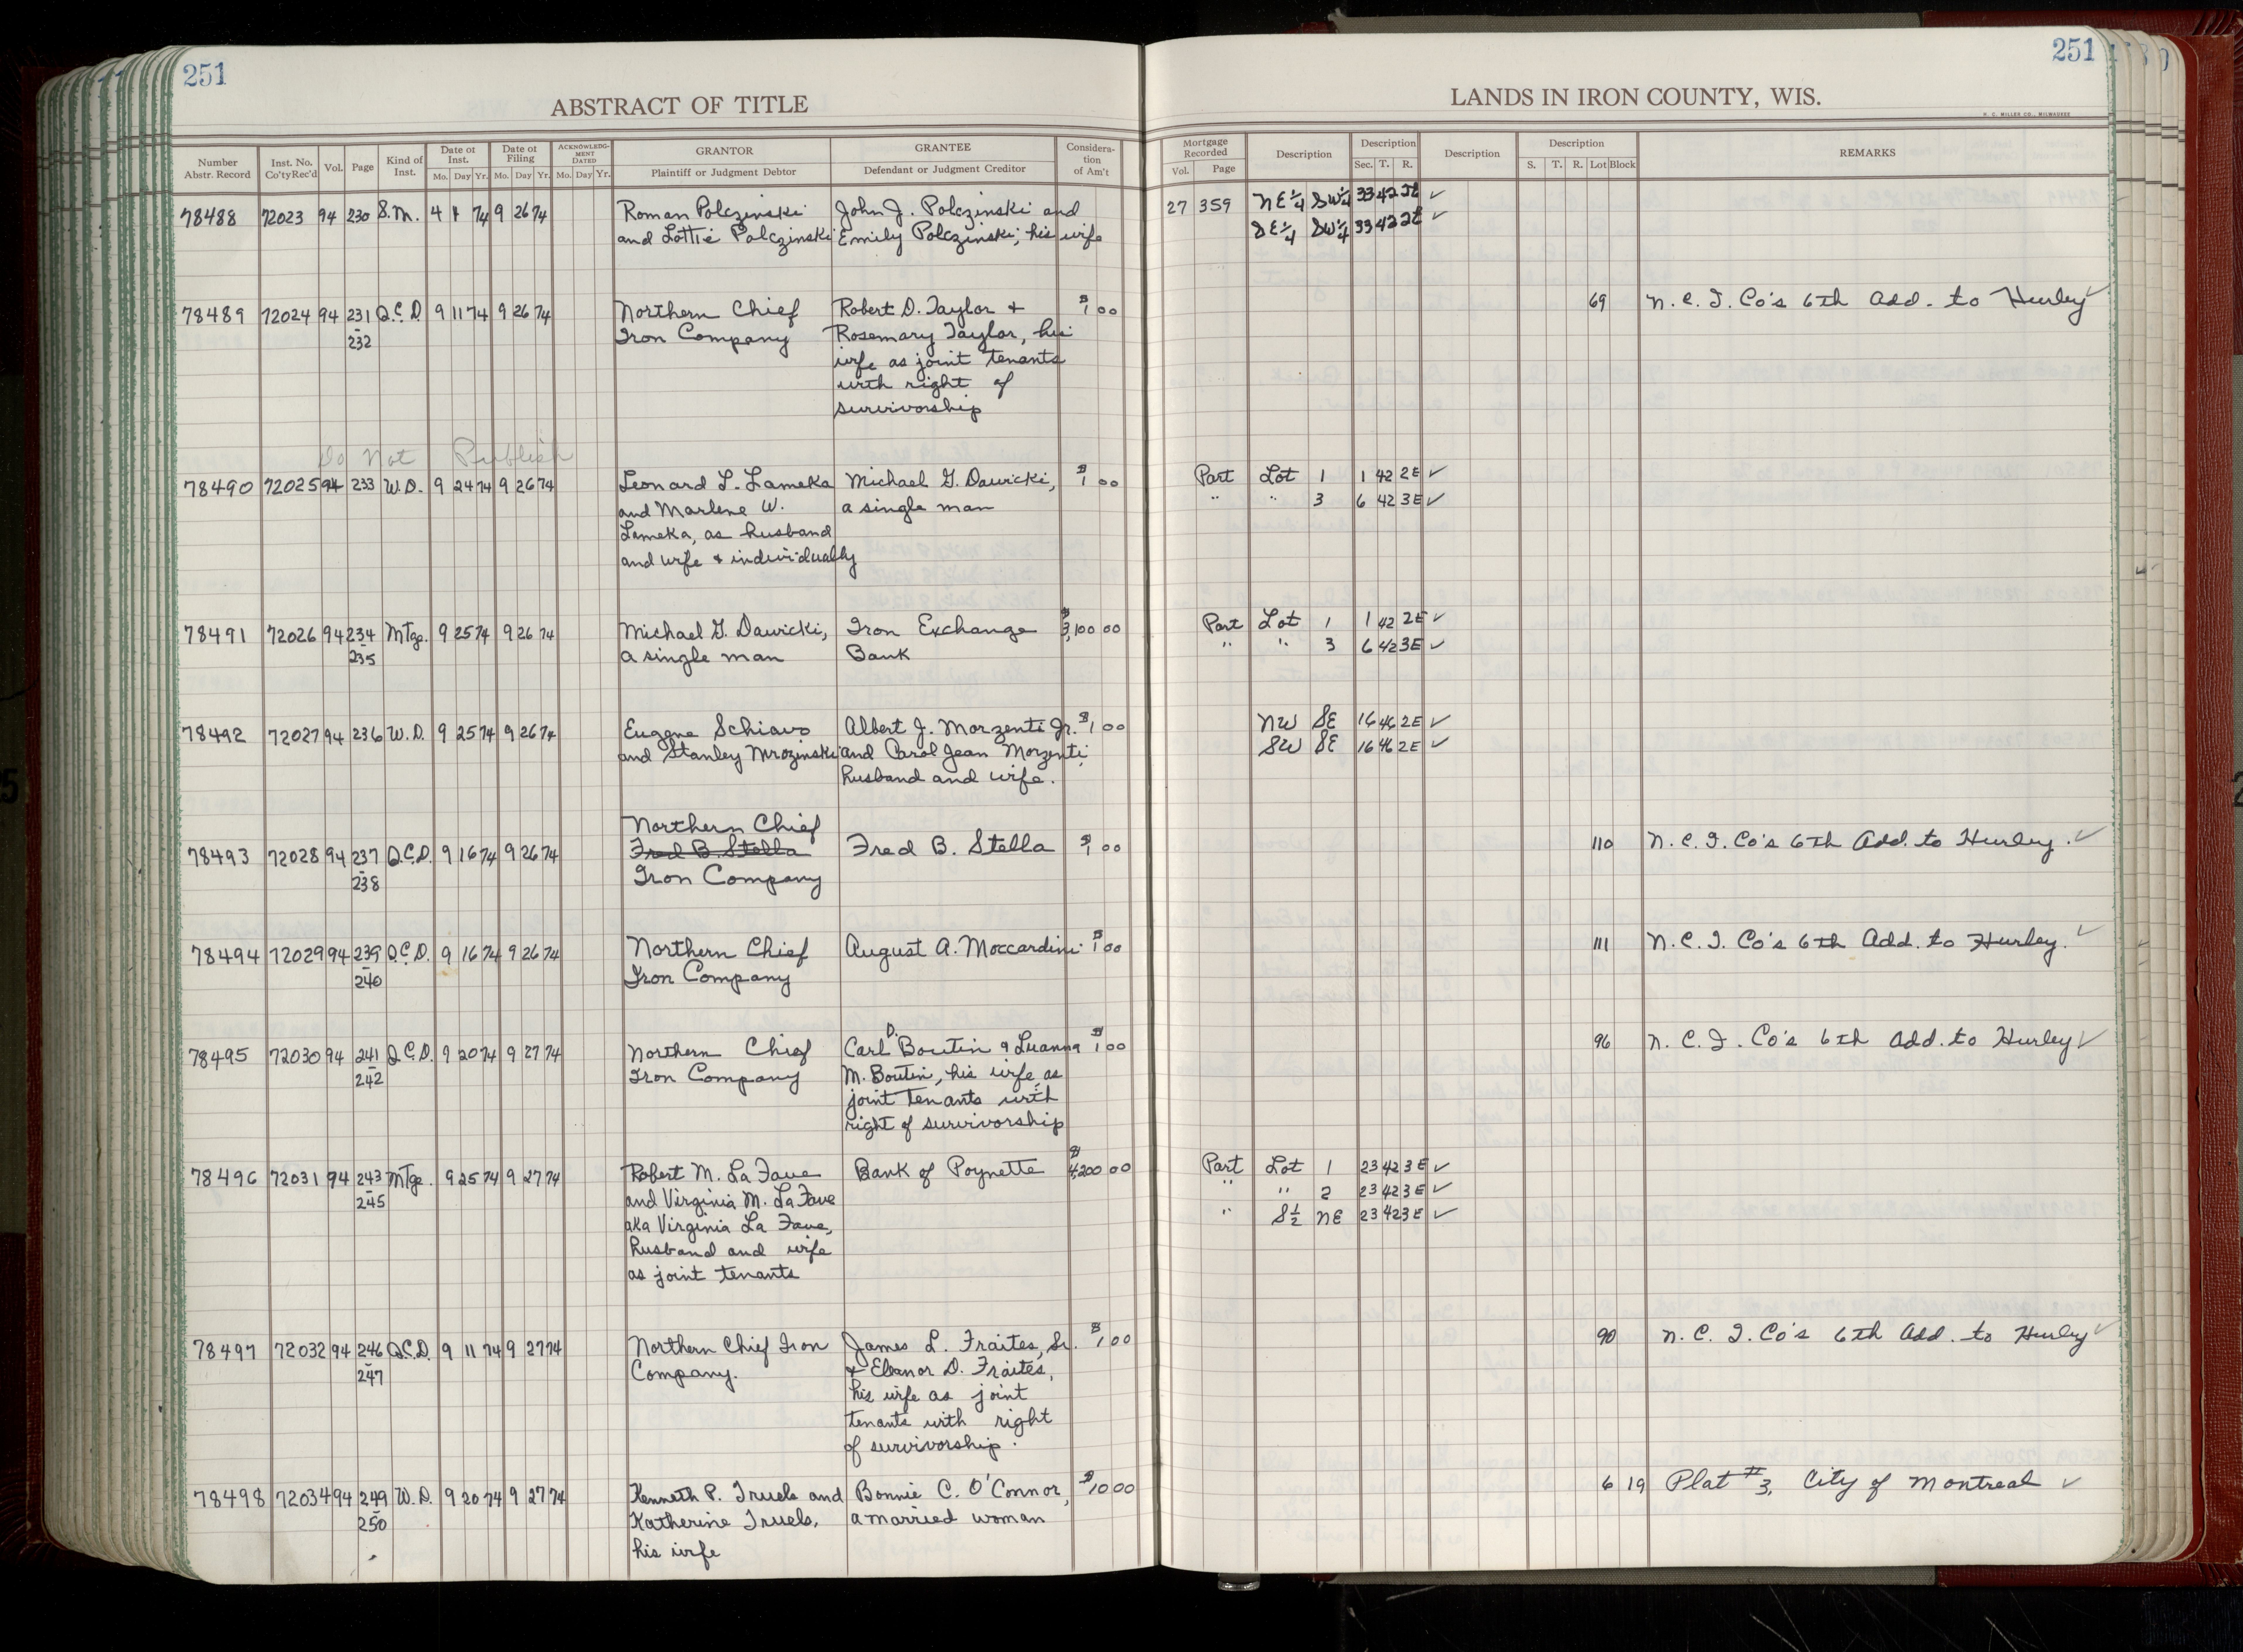 251
251
ABSTRACT OF TITLE
LANDS IN IRON COUNTY, WIS.
H. C. MILLER CO., MILWAUKEE
Number Abstr. Record | Inst. No. Co'ty Rec'd | Vol. | Page | Kind of Inst. | Date of Inst. Mo. Day Yr. | Date of Filing Mo. Day Yr. | ACKNOWLEDGMENT DATED Mo. Day Yr. | GRANTOR Plaintiff or Judgment Debtor | GRANTEE Defendant or Judgment Creditor | Consideration of Am't | Mortgage Recorded Vol. Page | Description | Description Sec. T. R. | Description | Description S. T. R. Lot Block | REMARKS
78488 72023 94 230 S.M. 4 1 74 9 26 74 Roman Polczinski John J. Polczinski and 27 359 NE 1/4 SW 1/4 33 42 2E ✓
and Lottie Polczinski Emily Polczinski, his wife SE 1/4 SW 1/4 33 42 2E ✓
78489 72024 94 231 Q.C.D. 9 11 74 9 26 74 Northern Chief Robert D. Taylor + $1 00 69 N.C.I. Co's 6th Add. to Hurley ✓
-232 Iron Company Rosemary Taylor, his
wife as joint tenants
with right of
survivorship
Do Not Publish
78490 72025 94 233 W.D. 9 24 74 9 26 74 Leonard L. Lameka Michael G. Dawicki, $1 00 Part Lot 1 1 42 2E ✓
and Marlene W. a single man " " 3 6 42 3E ✓
Lameka, as husband
and wife & individually
78491 72026 94 234 Mtge. 9 25 74 9 26 74 Michael G. Dawicki, Iron Exchange $3,100 00 Part Lot 1 1 42 2E ✓
-235 a single man Bank " " 3 6 42 3E ✓
78492 72027 94 236 W.D. 9 25 74 9 26 74 Eugene Schiavo Albert J. Morzenti Jr. $1 00 NW SE 16 46 2E ✓
and Stanley Mrozinski and Carol Jean Morzenti, SW SE 16 46 2E ✓
husband and wife.
Northern Chief
78493 72028 94 237 Q.C.D. 9 16 74 9 26 74 Fred B. Stella Fred B. Stella $1 00 110 N.C.I. Co's 6th Add. to Hurley. ✓
-238 Iron Company
78494 72029 94 239 Q.C.D. 9 16 74 9 26 74 Northern Chief August A. Moccardini $1 00 111 N.C.I. Co's 6th Add. to Hurley. ✓
-240 Iron Company
78495 72030 94 241 Q.C.D. 9 20 74 9 27 74 Northern Chief Carl D. Boutin & Luanna $1 00 96 N.C.I. Co's 6th Add. to Hurley ✓
-242 Iron Company M. Boutin, his wife as
joint tenants with
right of survivorship
78496 72031 94 243 Mtge. 9 25 74 9 27 74 Robert M. La Fave Bank of Poynette $4,200 00 Part Lot 1 23 42 3E ✓
-245 and Virginia M. La Fave " " 2 23 42 3E ✓
aka Virginia La Fave, " S 1/2 NE 23 42 3E ✓
husband and wife
as joint tenants
78497 72032 94 246 Q.C.D. 9 11 74 9 27 74 Northern Chief Iron James L. Fraites, Sr. $1 00 90 N.C.I. Co's 6th Add. to Hurley ✓
-247 Company. + Eleanor D. Fraites,
his wife as joint
tenants with right
of survivorship.
78498 72034 94 249 W.D. 9 20 74 9 27 74 Kenneth P. Truels and Bonnie C. O'Connor, $10 00 6 19 Plat #3, City of Montreal ✓
-250 Katherine Truels, a married woman
his wife